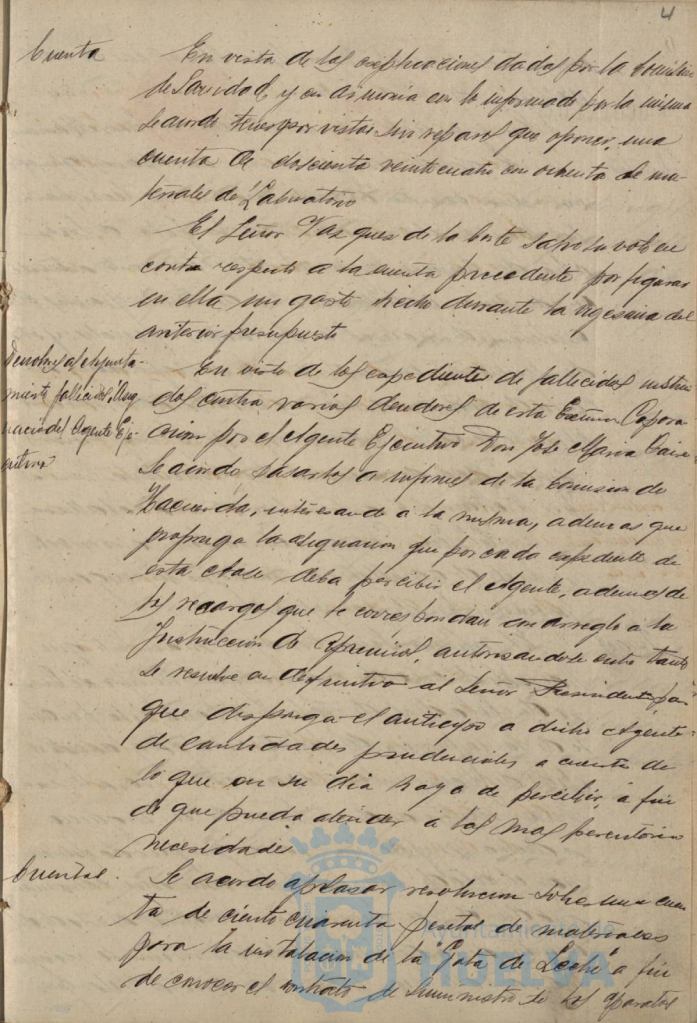 4
Cuenta
En vista de las esplicaciones dadas por la Comision
de Sanidad, y en armonia con lo informado por la misma
se acordó tener por vista sin reparos que oponer, una
cuenta de doscienta veinticuatro con ochenta de ma-
teriales de Laboratorio
El Señor Vazquez de la Corte salvo su voto en
contra respecto á la cuenta precedente por figurar
en ella un gasto hecho durante la vigencia del
anterior presupuesto
Deudores al Ayunta-
miento fallidos. Asig-
nacion del Agente Eje-
cutivo
En vista de los expedientes de fallidos instrui-
dos contra varios deudores de esta Excma Corpora-
cion por el Agente Ejecutivo Don José Maria
se acordó pasarlos á informes de la Comision de
Hacienda, interesando á la misma, ademas que
proponga la asignacion que por cada expediente de
esta clase deba percibir el Agente, ademas de
los recargos que le correspondan con arreglo a la
Instrucción de Apremios, autorisandose entre tanto
se resuelve en definitiva al Señor Presidente para
que disponga el anticipo a dicho Agente
de cantidades prudenciales a cuenta de
lo que en su dia haya de percibir, á fin
de que pueda atender á las mas perentorias
necesidades
Cuentas.
Se acordó aplazar resolucion sobre una cuen-
ta de ciento cuarenta pesetas de materiales
para la instalacion de la "Gota de Leche" a fin
de conocer el contrato de suministro de los aparatos
HUELVA